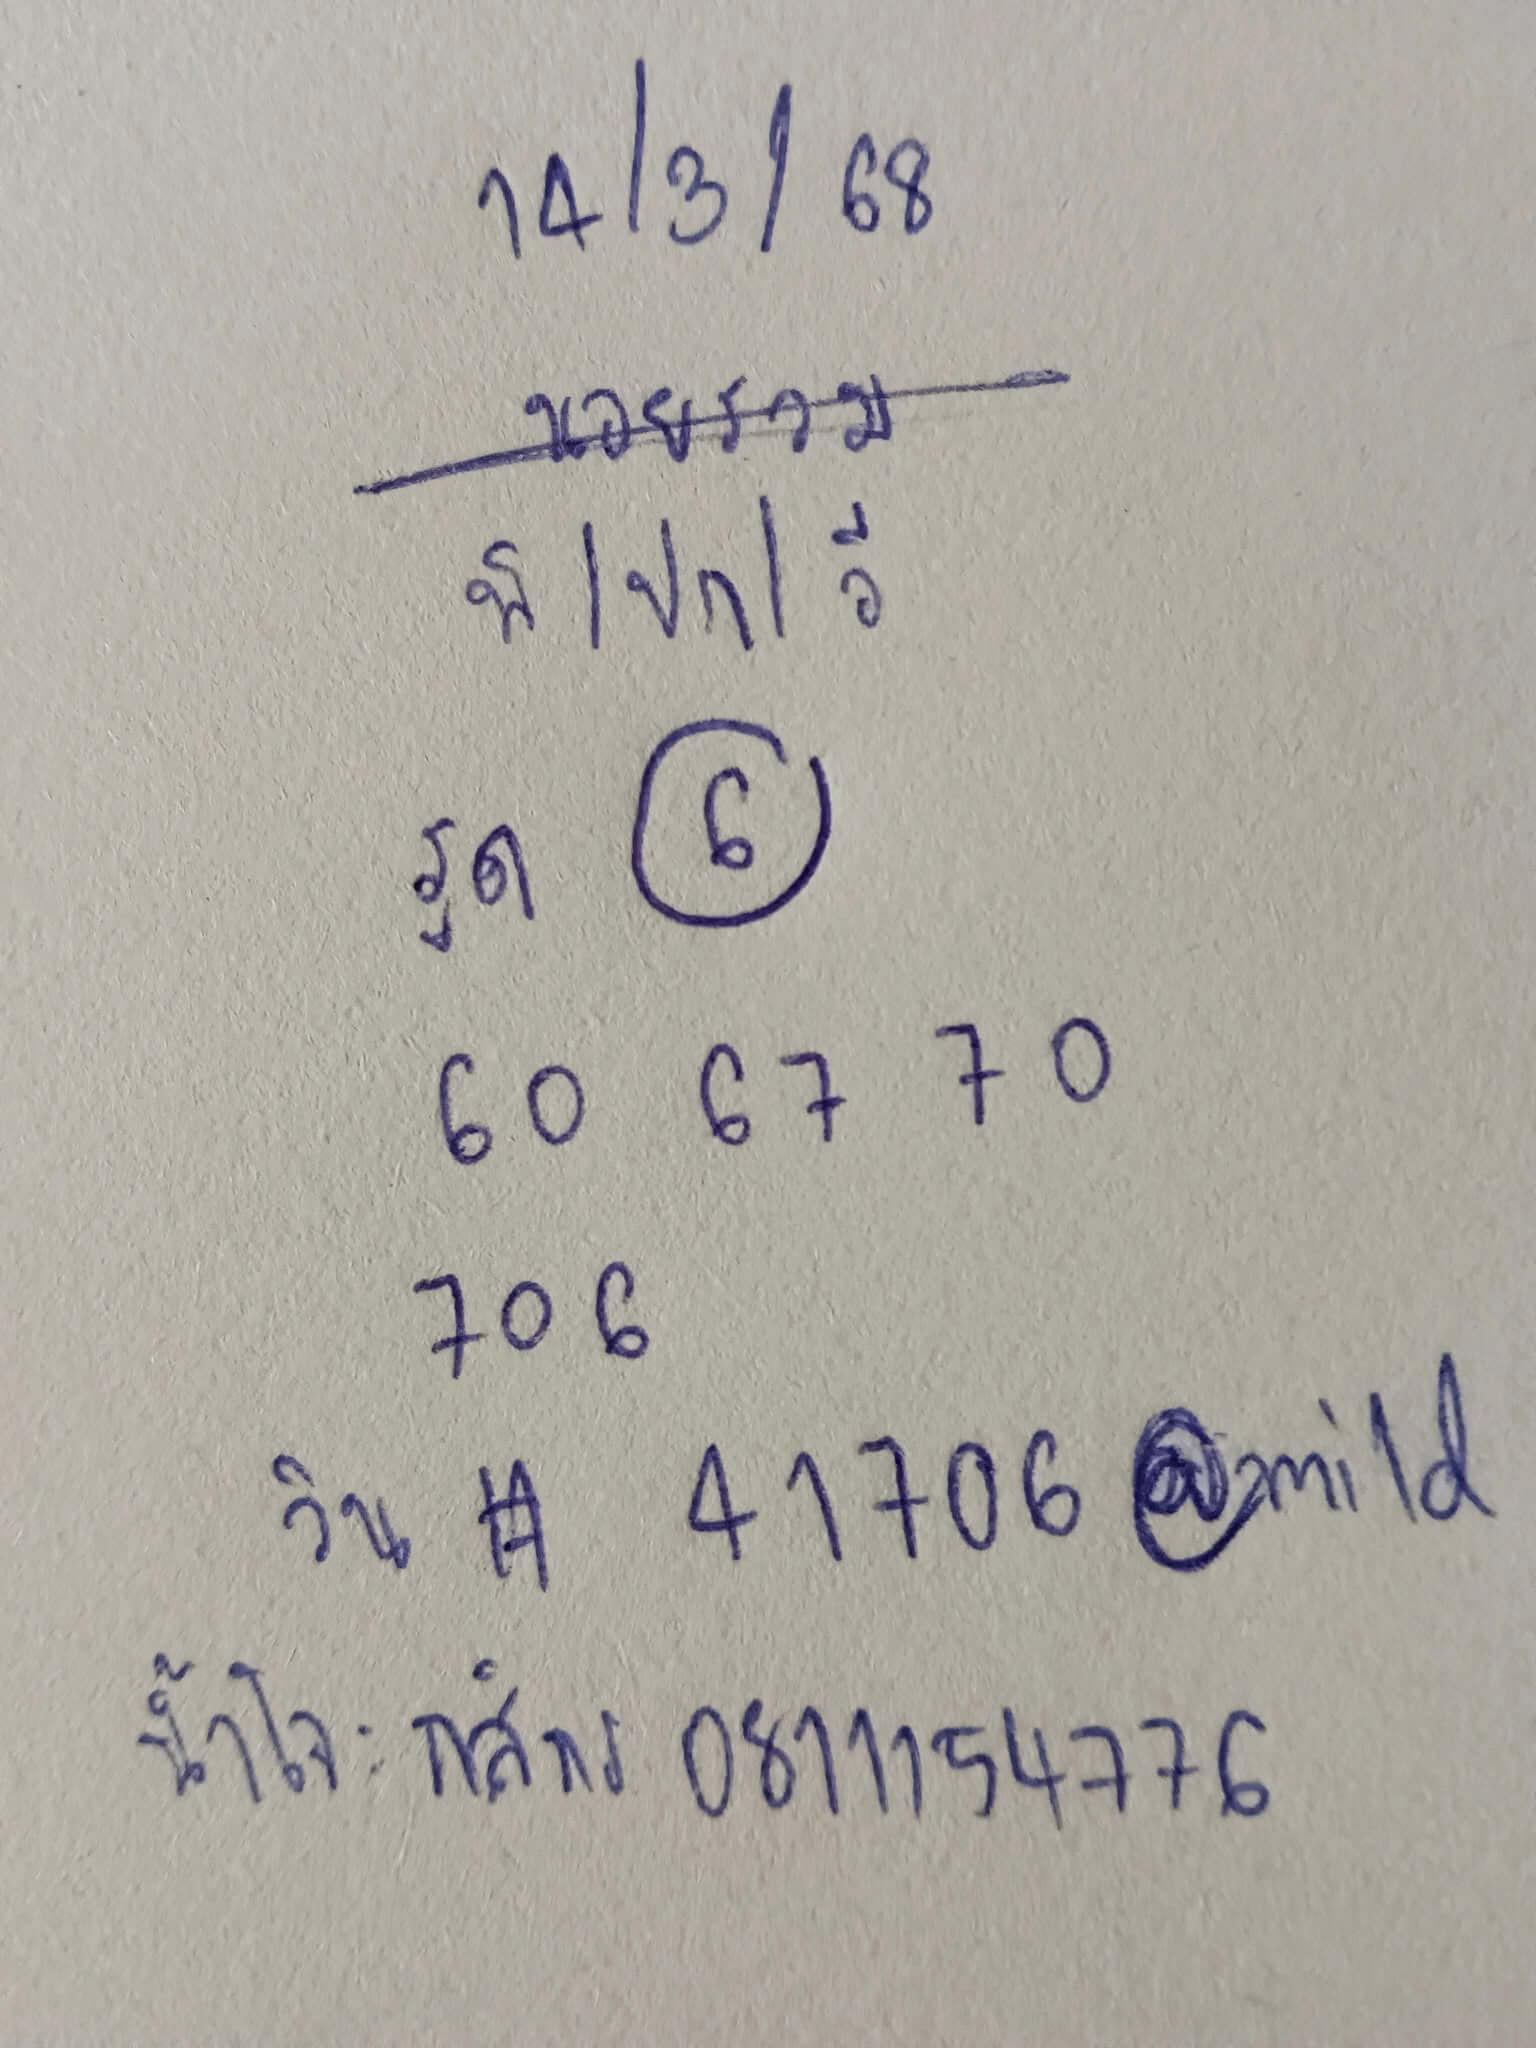 14/3/68
นอยรวม
พิ/ปก/วี
รูด 6
60 67 70
706
วิน # 41706 mild
น้ำใจ: กสิกร 0811154776